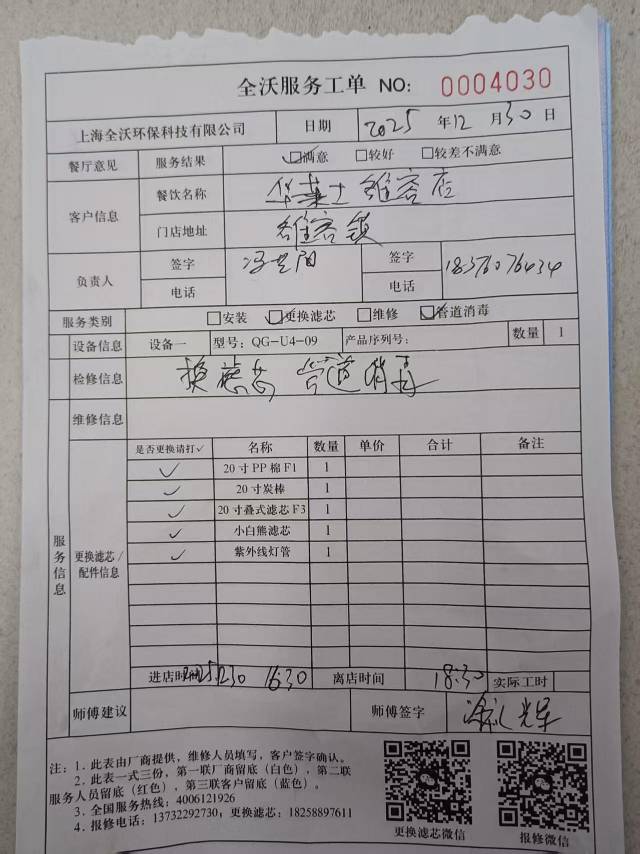 全沃服务工单 NO: 0004030
上海全沃环保科技有限公司 日期 2025 年 12 月 30 日
餐厅意见 服务结果 ☑满意 □较好 □较差不满意
客户信息 餐饮名称 华莱士 雒容店
门店地址 雒容镇
负责人 签字 签字 18376076434
电话 电话
服务类别 □安装 ☑更换滤芯 □维修 ☑管道消毒
设备信息 设备一 型号: QG-U4-09 产品序列号: 数量 1
检修信息 换滤芯 管道消毒
维修信息
服务信息
更换滤芯/配件信息
是否更换请打✓ 名称 数量 单价 合计 备注
✓ 20寸PP棉F1 1
✓ 20寸炭棒 1
✓ 20寸叠式滤芯F3 1
✓ 小白熊滤芯 1
✓ 紫外线灯管 1
进店时间 16:30 离店时间 18:30 实际工时
师傅建议 师傅签字
注: 1. 此表由厂商提供，维修人员填写，客户签字确认。
2. 此表一式三份，第一联厂商留底（白色），第二联
服务人员留底（红色），第三联客户留底（蓝色）。
3. 全国服务热线: 4006121926
4. 报修电话: 13732292730; 更换滤芯: 18258897611
更换滤芯微信 报修微信